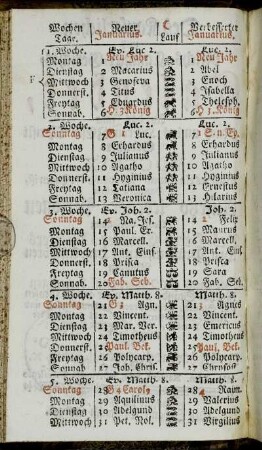 Wochen Neuer C Verbesserter
Tage. Januarius. Lauf Januarius.
1. Woche. Ev. Luc. 2. Luc. 2.
Montag 1 Neu Jahr 1 Neu Jahr
Dienstag 2 Macarius 2 Abel
Mittwoch 3 Genoveva 3 Enoch
Donnerst. 4 Titus 4 Isabella
Freytag 5 Eduardus 5 Telesph.
Sonnab. 6 H. 3 König 6 H. 3 König
2. Woche. Ev. Luc. 2. Luc. 2.
Sonntag 7 G 1 Luc. 7 1 S. n. Ep.
Montag 8 Erhardus 8 Erhardus
Dienstag 9 Julianus 9 Julianus
Mittwoch 10 Agatho 10 Agatho
Donnerst. 11 Hyginus 11 Hyginus
Freytag 12 Tatiana 12 Ernestus
Sonnab. 13 Veronica 13 Hilarius
3. Woche. Ev. Joh. 2. Joh. 2.
Sonntag 14 Na. Jes. 14 Felix
Montag 15 Paul. Er. 15 Maurus
Dienstag 16 Marcell. 16 Marcell.
Mittwoch 17 Ant. Einf. 17 Ant. Einf.
Donnerst. 18 Prisca 18 Prisca
Freytag 19 Canutus 19 Sara
Sonnab. 20 Fab. Seb. 20 Fab. Seb.
4. Woche. Ev. Matth. 8. Matth. 8.
Sonntag 21 G 3 Agn. 21 Agnes
Montag 22 Vincent. 22 Vincent.
Dienstag 23 Mar. Ver. 23 Emericus
Mittwoch 24 Timotheus 24 Timotheus
Donnerst. 25 Paul. Bek. 25 Paul. Bek.
Freytag 26 Polycarp. 26 Polycarp.
Sonnab. 27 Joh. Chris. 27 Chrysost.
5. Woche. Ev. Matth. 8. Matth. 8.
Sonntag 28 G 4 Carol. 28 4
Montag 29 Aquilinus 29 Valerius
Dienstag 30 Adelgund 30 Adelgund
Mittwoch 31 Pet. Nol. 31 Virgilius